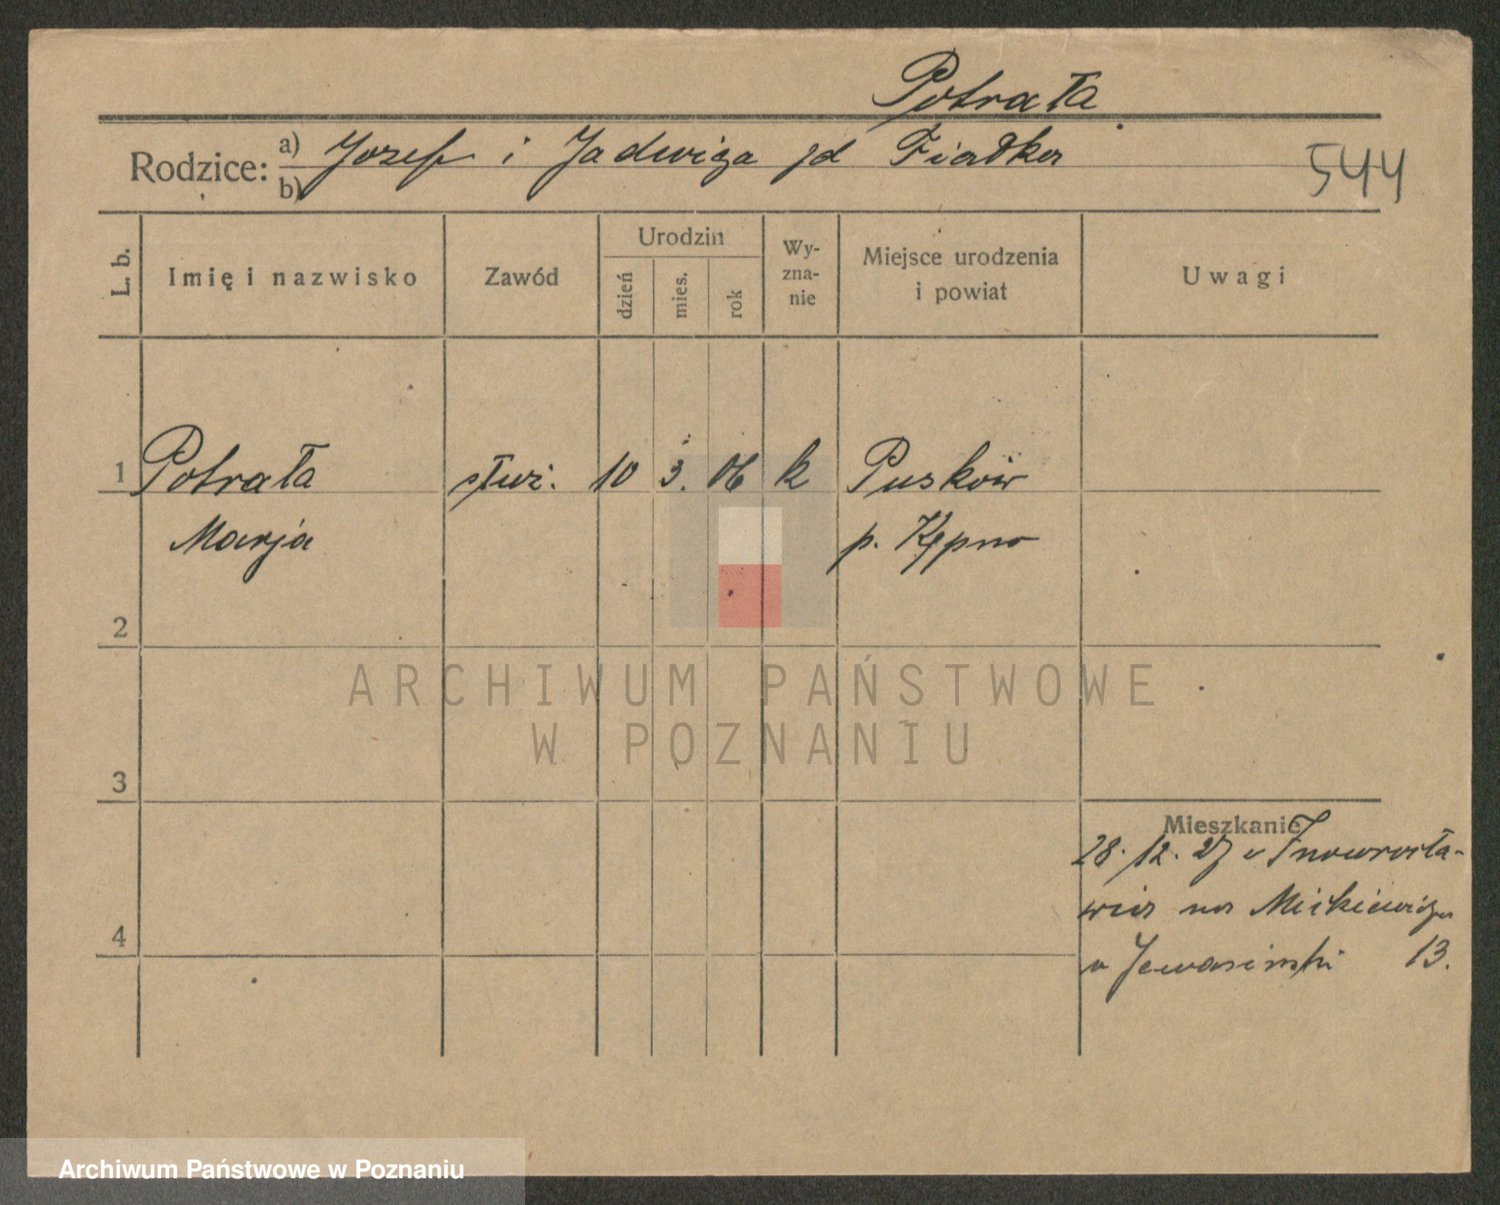 Potrała
Rodzice: a) Jozef i Jadwiga zd Fiałka
b)
544
L. b.
Imię i nazwisko
Zawód
Urodzin
dzień
mies.
rok
Wy-
zna-
nie
Miejsce urodzenia
i powiat
Uwagi
1 Potrała służ. 10 3. 06 k Puskòw
Marja p. Kępno
2
3
4
Mieszkanie
28. 12. 27 v Inowrocła-
wia na Mickiewicza
u 13.
ARCHIWUM PAŃSTWOWE
W POZNANIU
Archiwum Państwowe w Poznaniu